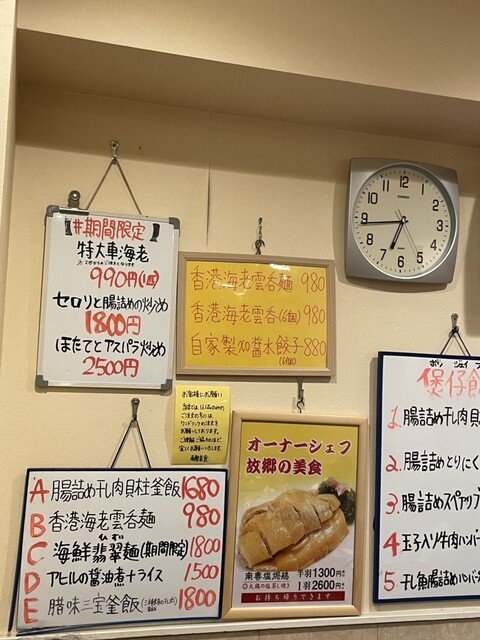 #期間限定
特大車海老
990円(1個)
セロリと腸詰めの炒め
1800円
ほたてとアスパラ炒め
2500円
香港海老雲呑麺 980
香港海老雲呑(6個) 980
自家製XO醬水餃子 880
(6個)
お客様にお願い
オーナーシェフ
故郷の美食
南粤塩焗鶏 半羽1300円
1羽2600円
お持ち帰りできます
A 腸詰め干し肉貝柱釜飯 1680
B 香港海老雲呑麺 980
ひすい
C 海鮮翡翠麺(期間限定) 1800
D アヒルの醤油煮+ライス 1500
E 腊味三宝釜飯 1800
煲仔飯
1. 腸詰め干し肉貝柱
2. 腸詰めとりにく
3. 腸詰めスペアリブ
4 玉子入り牛肉ハンバ
5 干魚腸詰めハンバー
12
1
2
3
4
5
6
7
8
9
10
11